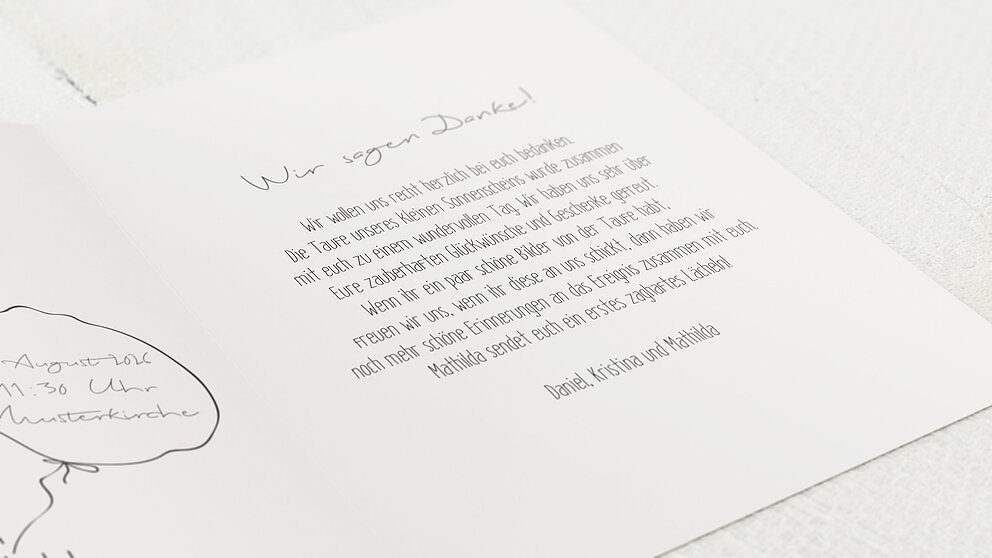 Wir sagen Danke!
Wir wollen uns recht herzlich bei euch bedanken.
Die Taufe unseres kleinen Sonnenscheins wurde zusammen
mit euch zu einem wundervollen Tag. Wir haben uns sehr über
Eure zauberhaften Glückwünsche und Geschenke gefreut.
Wenn ihr ein paar schöne Bilder von der Taufe habt,
freuen wir uns, wenn ihr diese an uns schickt, dann haben wir
noch mehr schöne Erinnerungen an das Ereignis zusammen mit euch.
Mathilda sendet euch ein erstes zaghaftes Lächeln!
Daniel, Kristina und Mathilda
August 2026
11:30 Uhr
Musterkirche